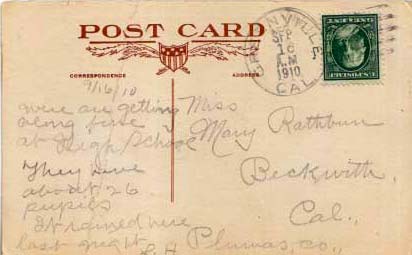 POST CARD
CORRESPONDENCE
ADDRESS
SEP
16
A.M
1910
CAL
9/16/10
were are getting
along fine
at High School
They have
about 26
pupils
It rained here
last night
Miss
Mary Rathbun
Beckwith,
Cal.,
Plumas, Co.,